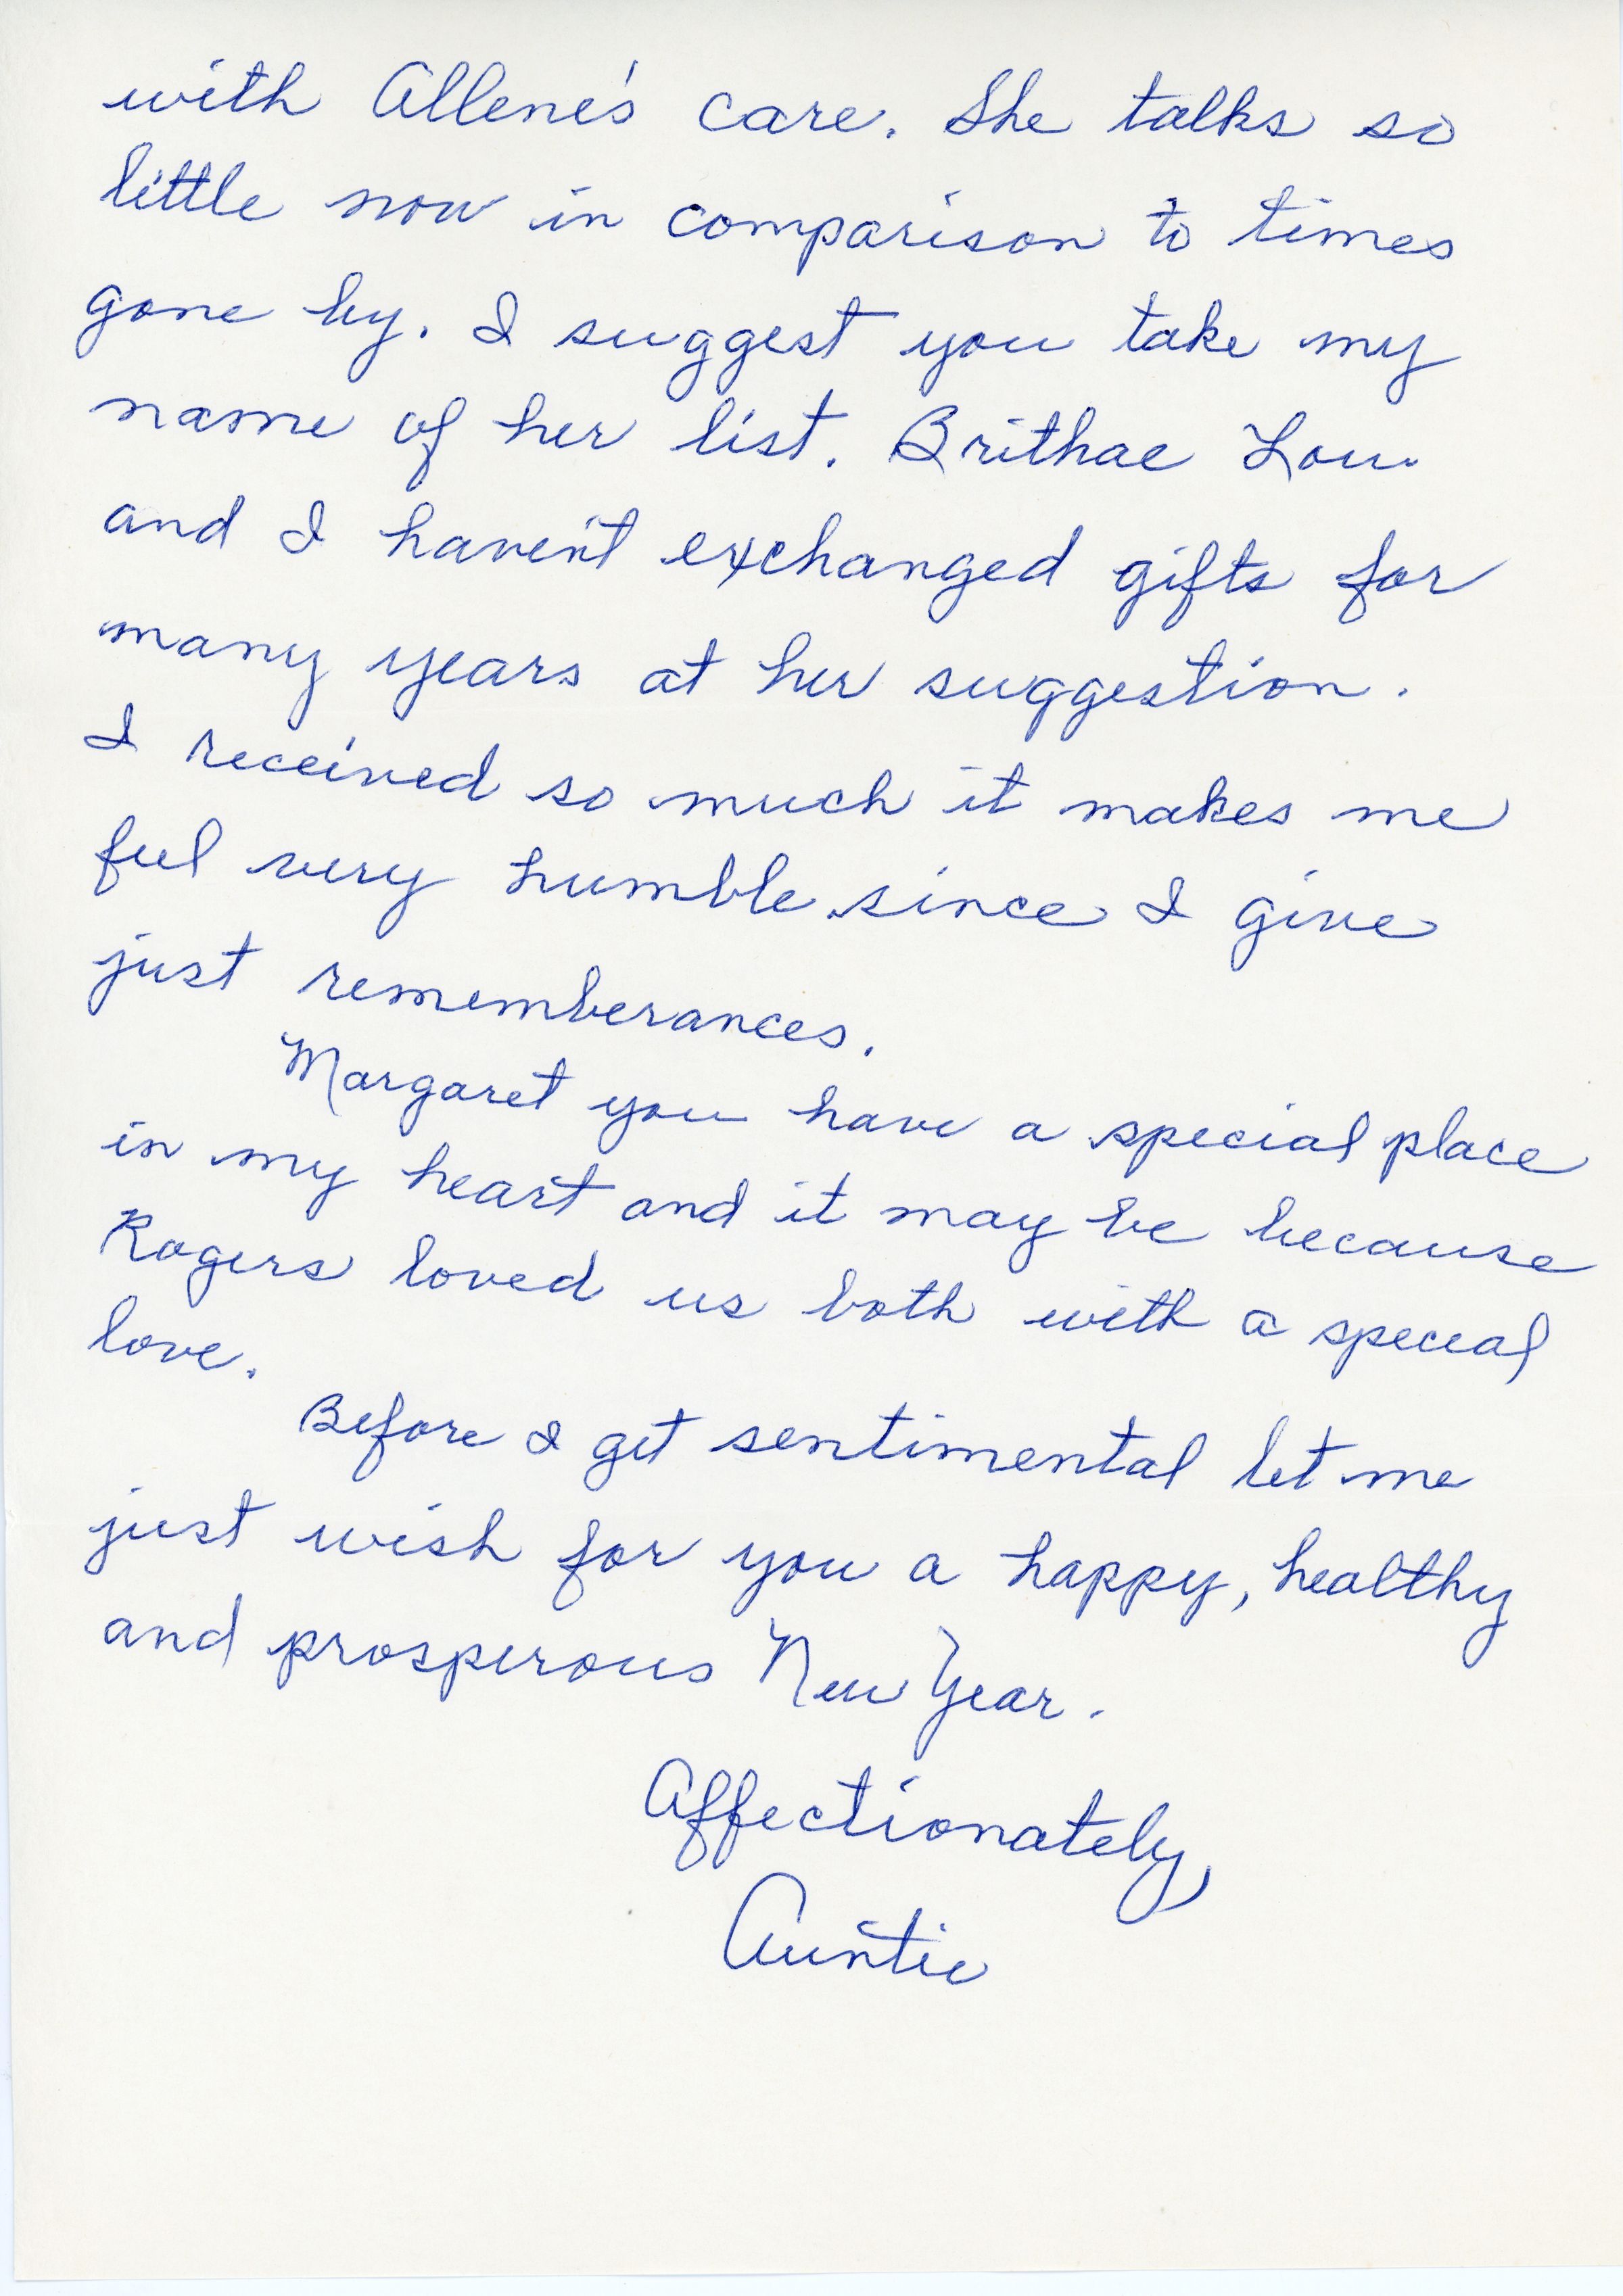 with Allene's care. She talks so
little now in comparison to times
gone by. I suggest you take my
name of her list. Brithae Lou
and I haven't exchanged gifts for
many years at her suggestion.
I received so much it makes me
feel very humble since I give
just rememberances.
Margaret you have a special place
in my heart and it may be because
Rogers loved us both with a special
love.
Before I get sentimental let me
just wish for you a happy, healthy
and prosperous New Year.
Affectionately,
Auntie